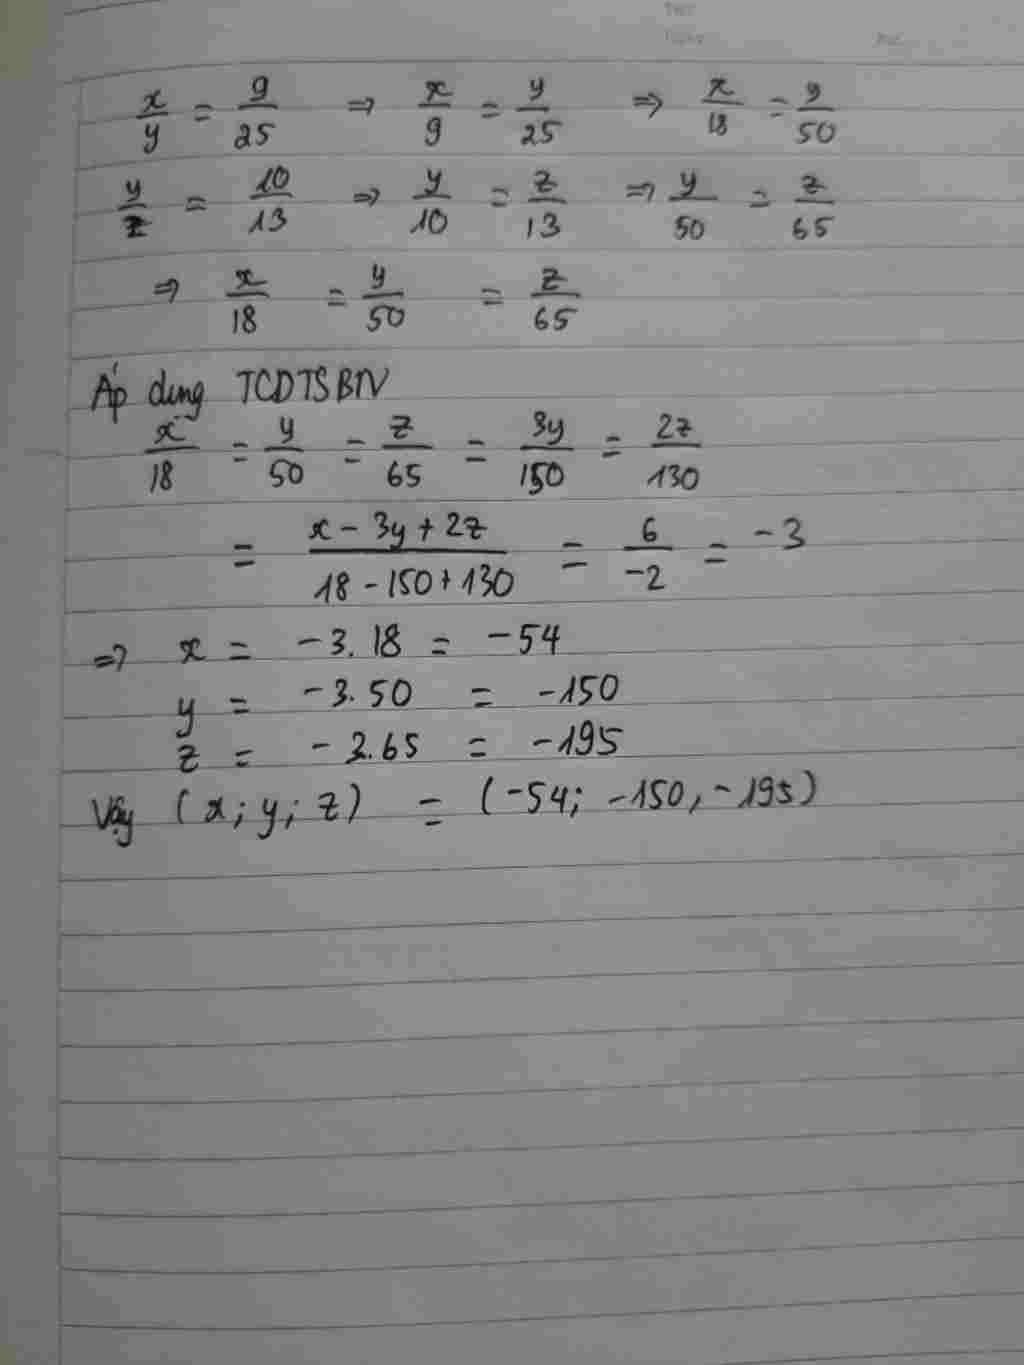 x/y = 9/25 => x/9 = y/25 => x/18 = y/50
y/z = 10/13 => y/10 = z/13 => y/50 = z/65
=> x/18 = y/50 = z/65
Áp dung TCDTSBN
x/18 = y/50 = z/65 = 3y/150 = 2z/130
= (x - 3y + 2z)/(18 - 150 + 130) = 6/-2 = -3
=> x = -3.18 = -54
y = -3.50 = -150
z = -3.65 = -195
Vậy (x; y; z) = (-54; -150, -195)